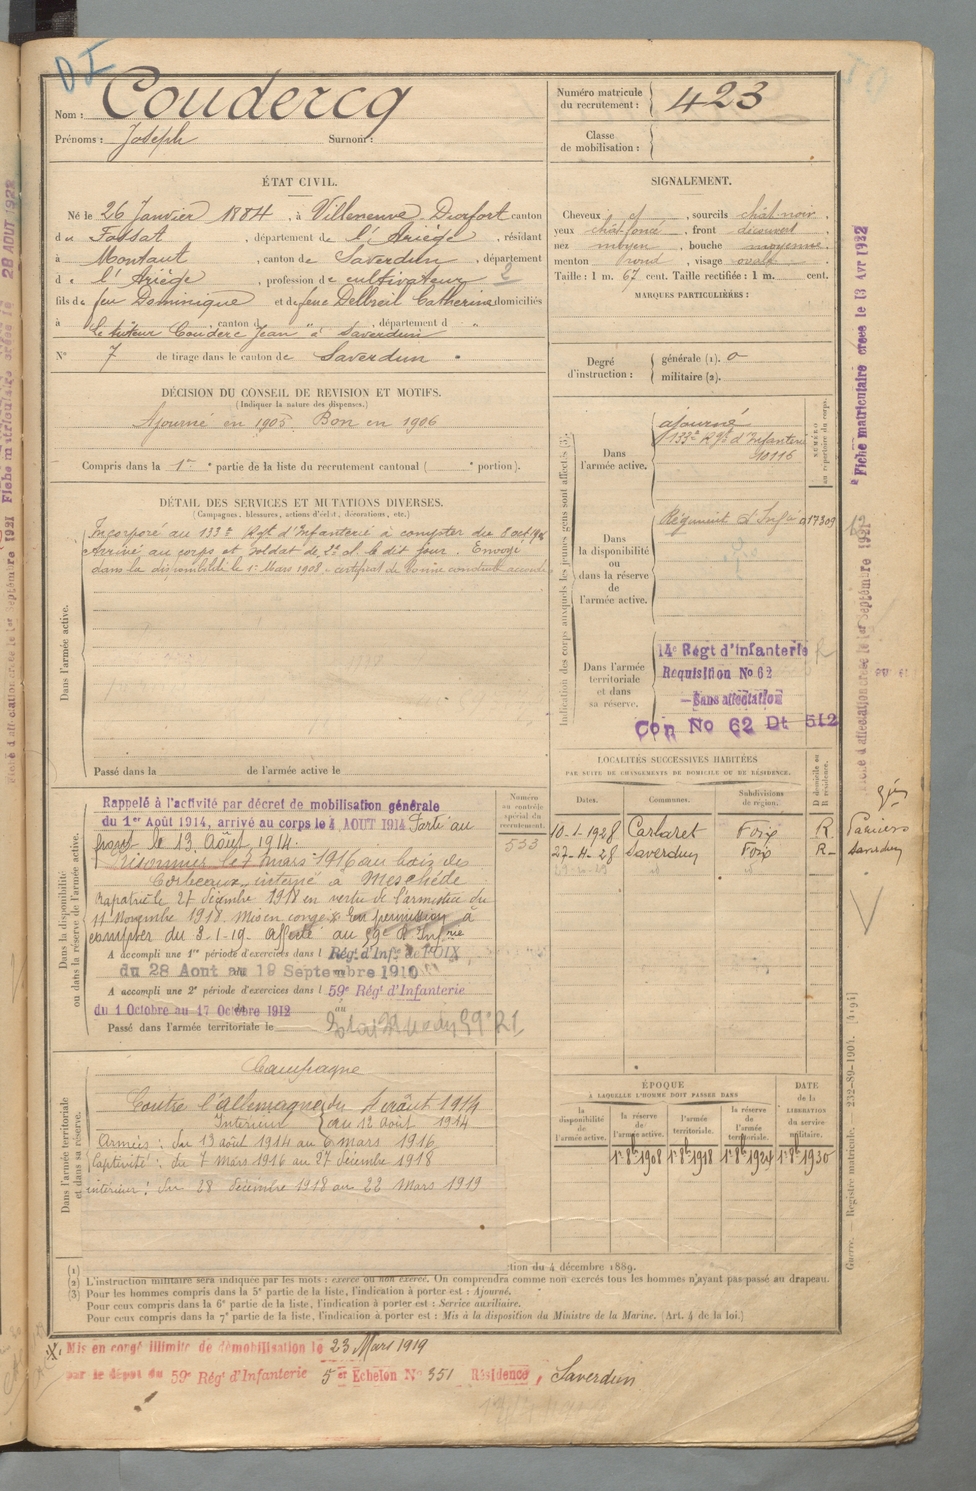 D I
Nom : Coudercq
Prénoms : Joseph Surnom :
Numéro matricule du recrutement : 423
Classe de mobilisation :
ÉTAT CIVIL.
Né le 26 Janvier 1884, à Villeneuve-Durfort canton
du Fossat, département de l'Ariège, résidant
à Montaut, canton de Saverdun, département
de l'Ariège, profession de cultivateur 2
fils de feu Dominique et de feue Delbreil Catherine domiciliés
à, canton d, département d
le tuteur Couderc Jean "à Saverdun
N° 7 de tirage dans le canton de Saverdun.
SIGNALEMENT.
Cheveux et, sourcils chât-noir,
yeux chât-foncé, front découvert
nez moyen, bouche moyenne,
menton rond, visage ovale
Taille : 1 m. 67 cent. Taille rectifiée : 1 m. cent.
MARQUES PARTICULIÈRES :
Degré d'instruction :
générale (1). 0
militaire (2).
DÉCISION DU CONSEIL DE REVISION ET MOTIFS.
(Indiquer la nature des dispenses.)
Ajourné en 1905. Bon en 1906
Compris dans la 1re partie de la liste du recrutement cantonal ( e portion).
DÉTAIL DES SERVICES ET MUTATIONS DIVERSES.
(Campagnes, blessures, actions d'éclat, décorations, etc.)
Dans l'armée active.
Incorporé au 133e Rgt d'Infanterie à compter du 8 oct
Arrivé au corps et soldat de 2e cl. le dit jour. Envoyé
dans la disponibilité le 1er Mars 1908 - certificat de bonne conduite accordé
Passé dans la de l'armée active le
Indication des corps auxquels les jeunes gens sont affectés (3).
NUMÉRO au répertoire du corps.
Dans l'armée active.
ajourné
133e Rgt d'Infanterie
10116
Dans la disponibilité ou dans la réserve de l'armée active.
Régiment d'Infie 017309
Dans l'armée territoriale et dans sa réserve.
14e Régt d'infanterie
Requisition No 62
—Sans affectation
Con No 62 Dt 512
LOCALITÉS SUCCESSIVES HABITÉES
PAR SUITE DE CHANGEMENTS DE DOMICILE OU DE RÉSIDENCE.
Dates. Communes. Subdivisions de région. D domicile ou R résidence.
10-1-1928 Carbaret Foix R. Pamiers
27-4-28 Saverdun Foix R- Saverdun
Dans la disponibilité ou dans la réserve de l'armée active.
Numéro au contrôle spécial du recrutement.
533
Rappelé à l'activité par décret de mobilisation générale
du 1er Août 1914, arrivé au corps le 4 AOUT 1914 Parti au
front le 13 Août 1914.
Prisonnier le 7 mars 1916 au bois des
Corbeaux, interné à Meschede
Rapatrié le 27 décembre 1918 en vertu de l'armistice du
11 Novembre 1918. Mis en congé & En permission à
compter du 3-1-19. Affecté au 59e R Infrie
A accompli une 1re période d'exercices dans l Rég. d'Inf. de FOIX
du 28 Aout au 19 Septembre 1910
A accompli une 2e période d'exercices dans l 59e Régt d'Infanterie
du 1 Octobre au 17 Octobre 1912
Passé dans l'armée territoriale le
Dans l'armée territoriale et dans sa réserve.
Campagne
Contre l'Allemagne du 4 août 1914
Intérieur au 12 août 1914
Armées : du 13 août 1914 au 6 mars 1916
Captivité : du 7 Mars 1916 au 27 décembre 1918
intérieur : du 28 décembre 1918 au 22 Mars 1919
ÉPOQUE
À LAQUELLE L'HOMME DOIT PASSER DANS
la disponibilité de l'armée active.
la réserve de l'armée active.
l'armée territoriale.
la réserve de l'armée territoriale.
DATE de la LIBÉRATION du service militaire.
1r 8b 1908 1r 8b 1918 1r 8b 1924 1r 8b 1930
(1) tion du 4 décembre 1889.
(2) L'instruction militaire sera indiquée par les mots : exercé ou non exercé. On comprendra comme non exercés tous les hommes n'ayant pas passé au drapeau.
(3) Pour les hommes compris dans la 5e partie de la liste, l'indication à porter est : Ajourné.
Pour ceux compris dans la 6e partie de la liste, l'indication à porter est : Service auxiliaire.
Pour ceux compris dans la 7e partie de la liste, l'indication à porter est : Mis à la disposition du Ministre de la Marine. (Art. 4 de la loi.)
Mis en congé illimité de démobilisation le 23 Mars 1919
par le dépôt du 59e Régt d'Infanterie 5e Echelon No 351 Résidence, Saverdun
Fiche matriculaire créée le 13 Avr 1932
Fiche d'affectation créée le 1er Septembre 1921
Guerre. — Registre matricule. 232-89-1901. [4194]
28 AOUT 1922